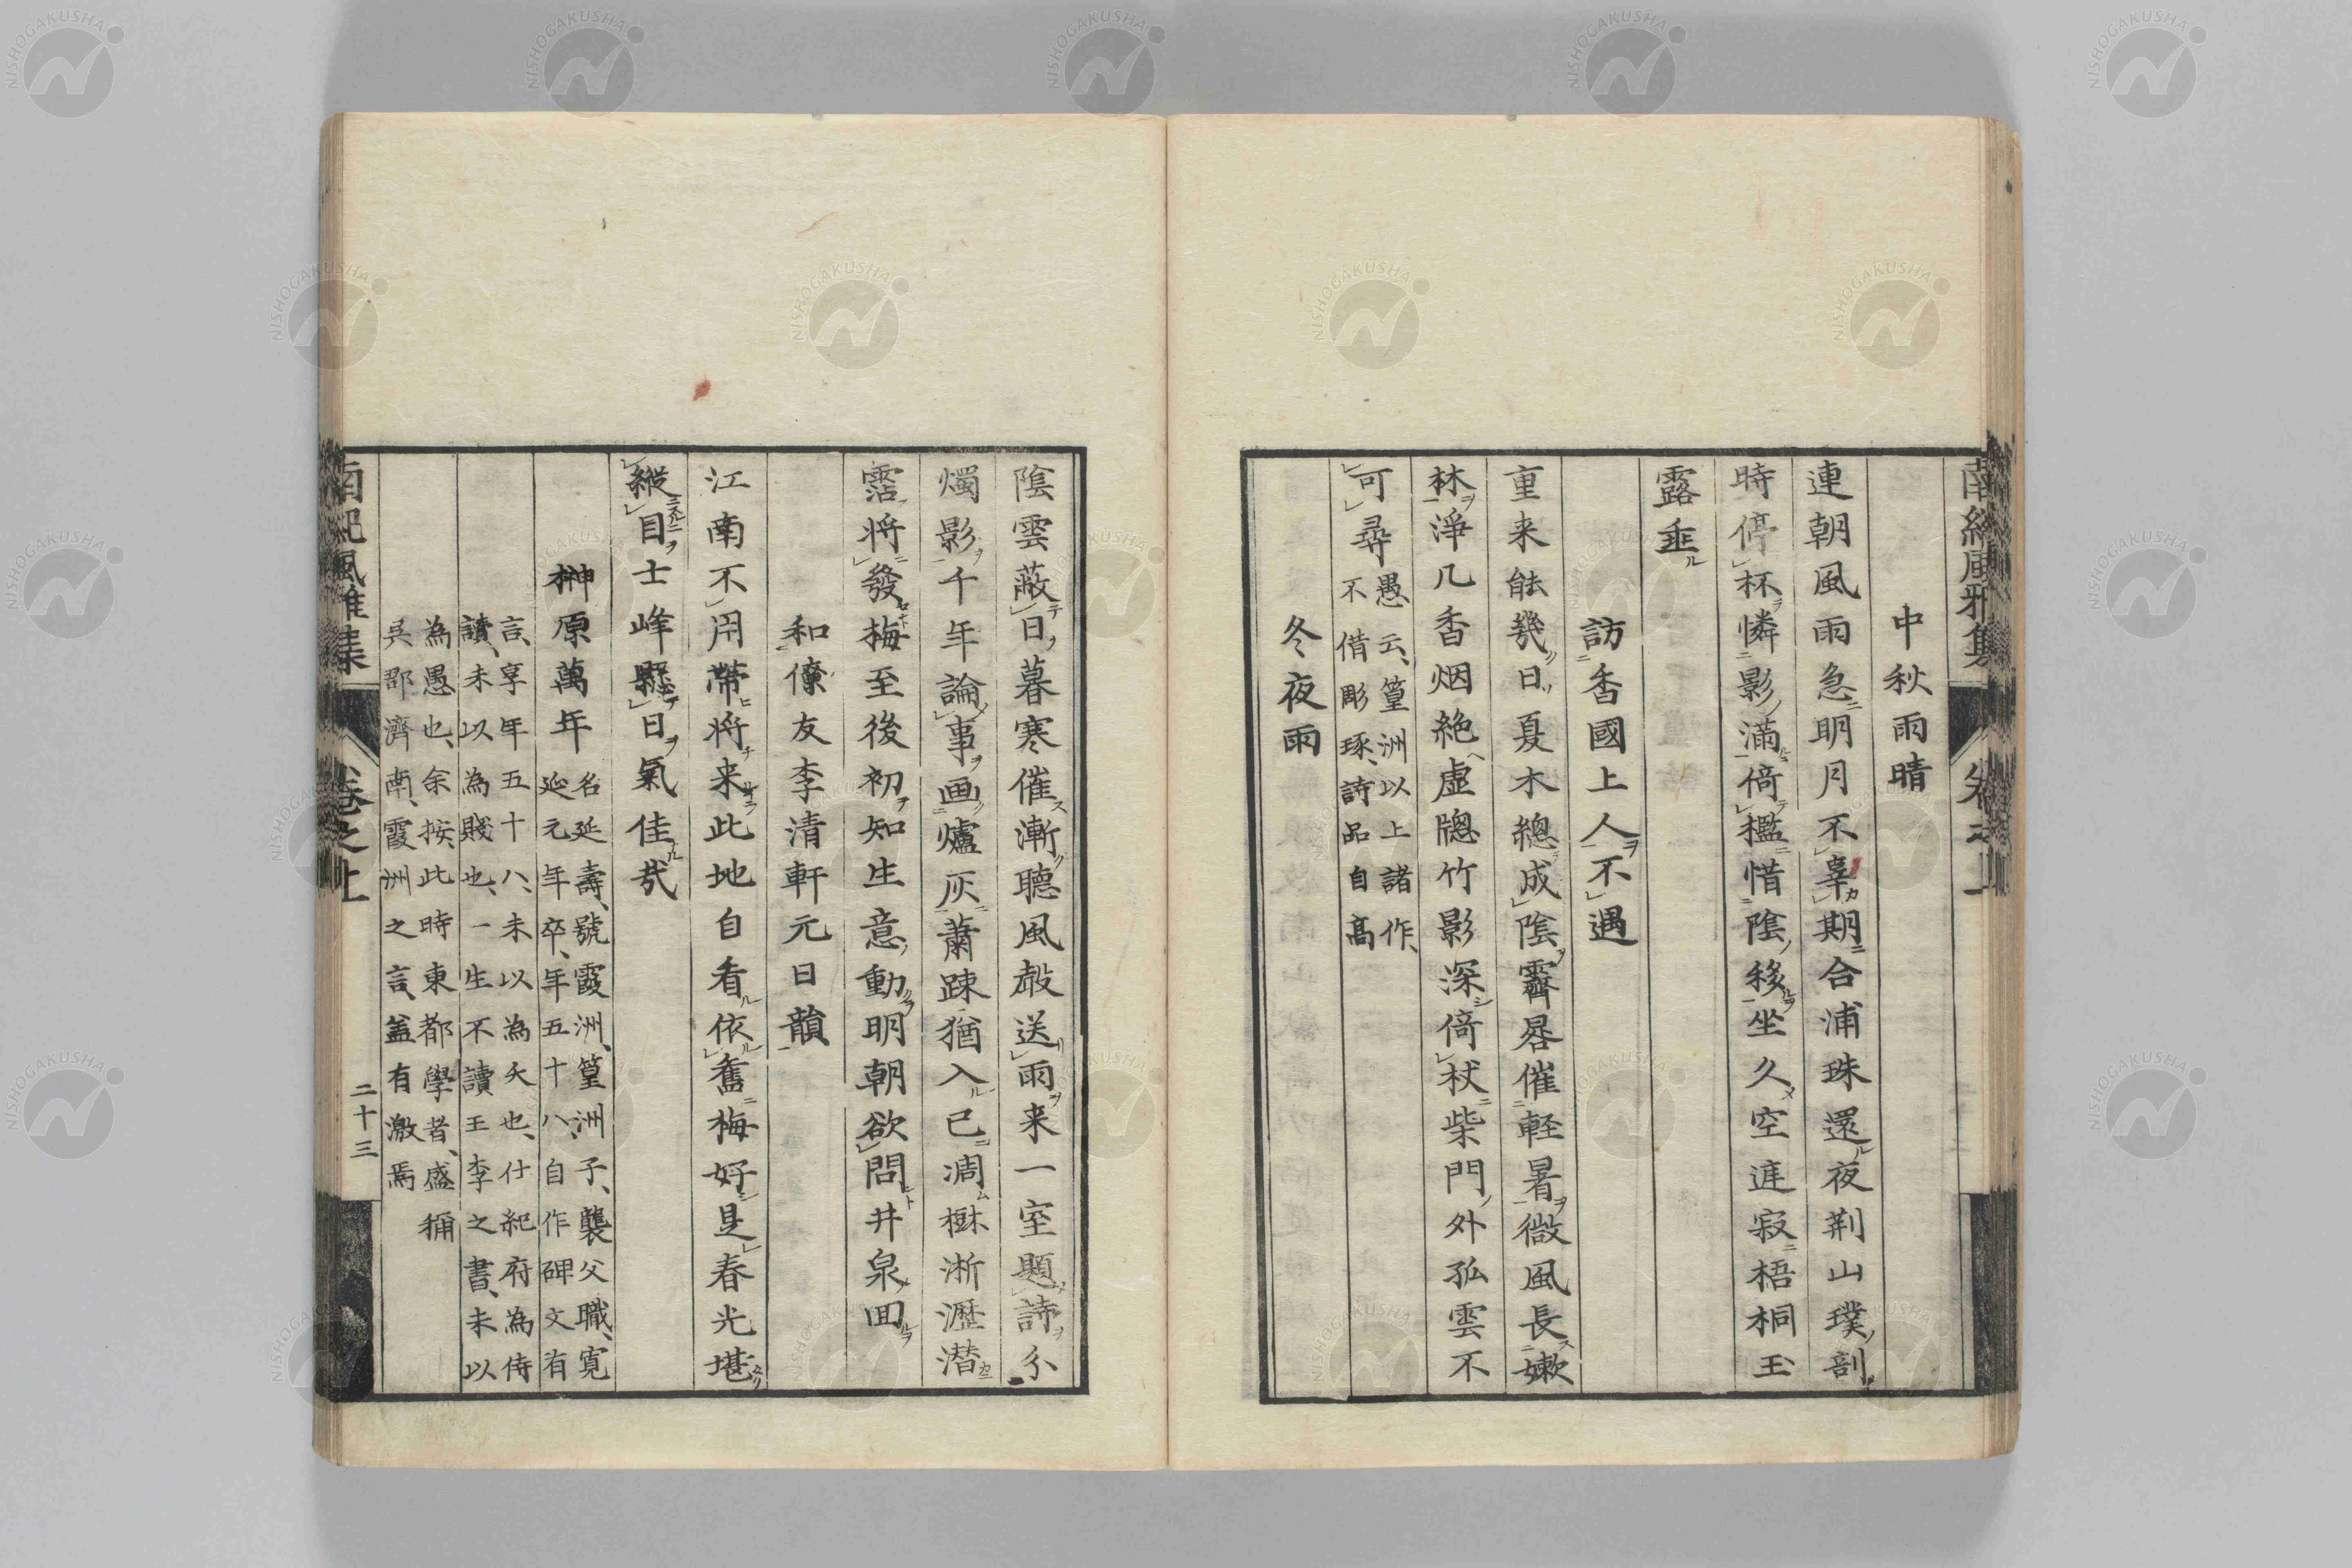 南紀風雅集
中秋雨晴
連朝風雨急明月不辜期合浦珠還夜荆山璞剖
時停杯憐影滿倚檻惜陰移坐久空庭寂梧桐玉
露垂
訪香國上人不遇
重来能幾日夏木總成陰霽晷催軽暑微風長嫩
林淨几香烟絶虛牕竹影深倚杖柴門外孤雲不
可尋
愚云、篁洲以上諸作、
不借彫琢、詩品自高
冬夜雨
陰雲蔽日暮寒催漸聴風聲送雨来一室題詩分
燭影千年論事画爐灰蕭踈猶入已凋樹淅瀝潜
霑将發梅至後初知生意動明朝欲問井泉回
和僚友李清軒元日韻
江南不用帶将来此地自看依舊梅好是春光堪
縱目士峰縣日氣佳哉
榊原萬年
名延壽、號霞洲、篁洲子、襲父職、寛
延元年卒、年五十八、自作碑文有
言、享年五十八、未以為夭也、仕紀府為侍
讀、未以為賤也、一生不讀王李之書、未以
為愚也、余按、此時東都學者、盛稱
呉郡濟南、霞洲之言、盖有激焉
南紀風雅集
卷之上
二十三
NISHOGAKUSHA